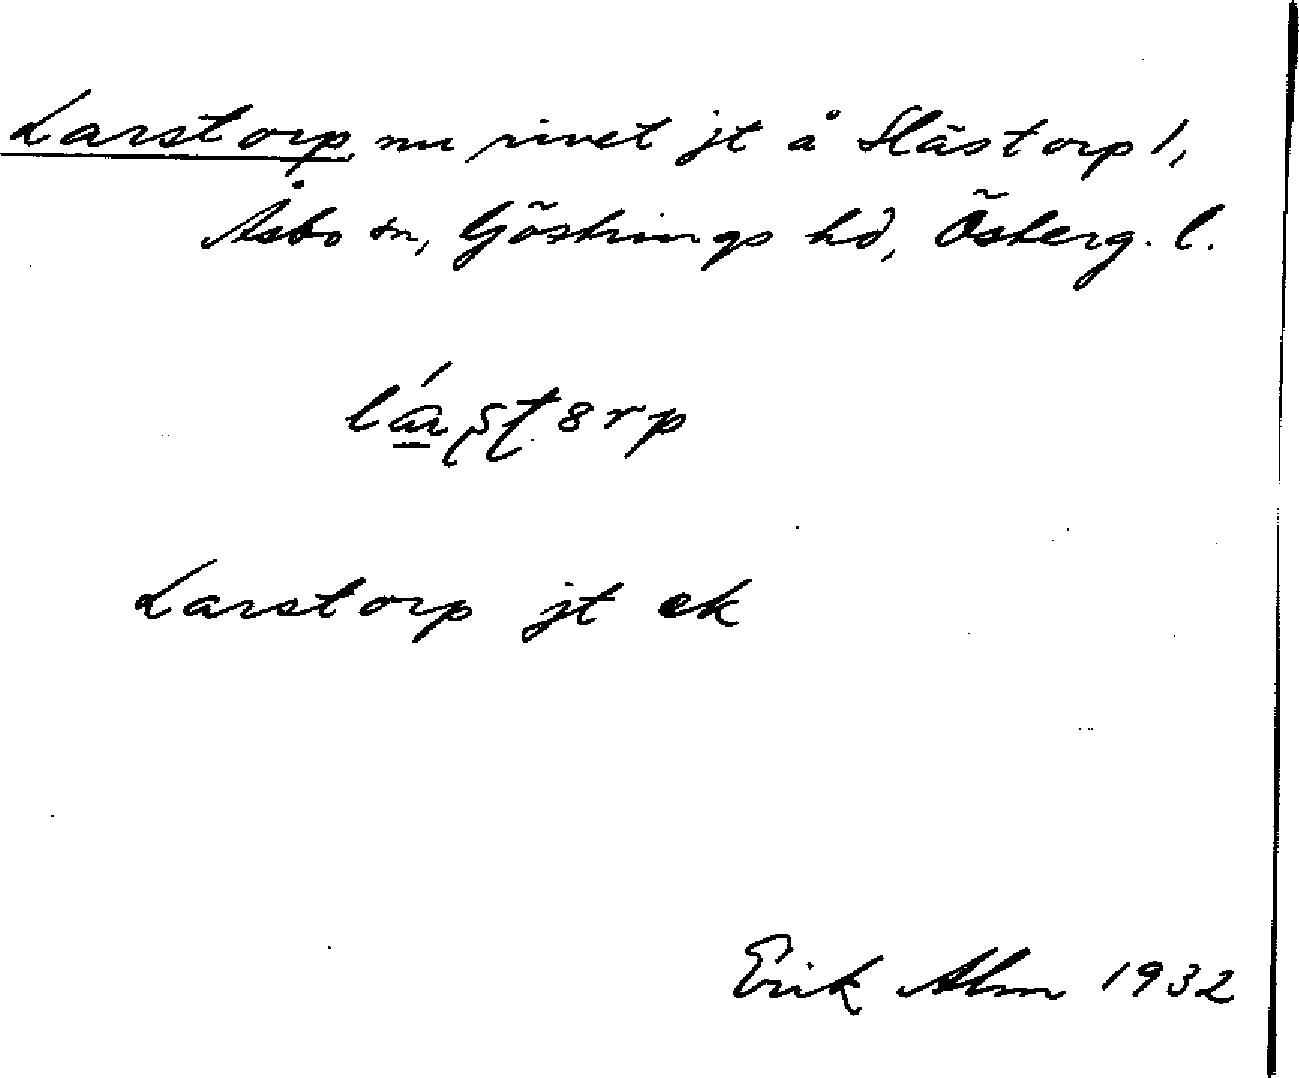 Larstorp nu rivet jt å Slästorp 1,
Åsbo sn, Göstrings hd, Österg. l.
Larstorp jt ek
Erik Alm 1932